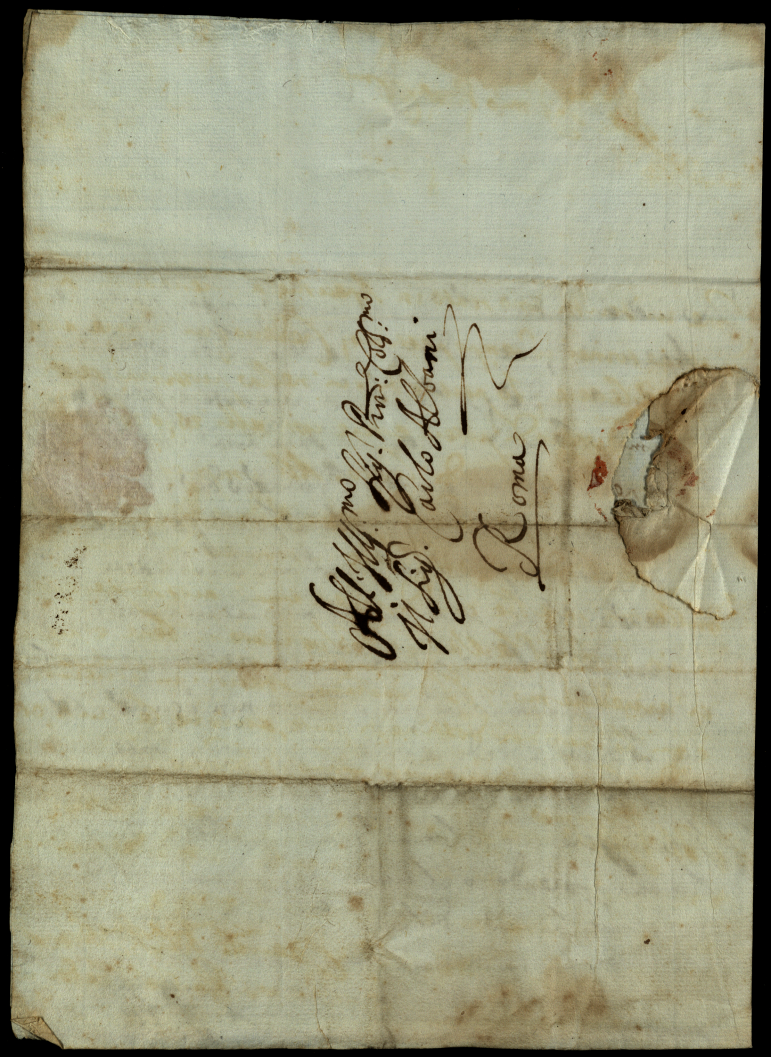 All: Ill:mo Sig: Pnō: Col:mo
Il Sig: Carlo Albani
Roma